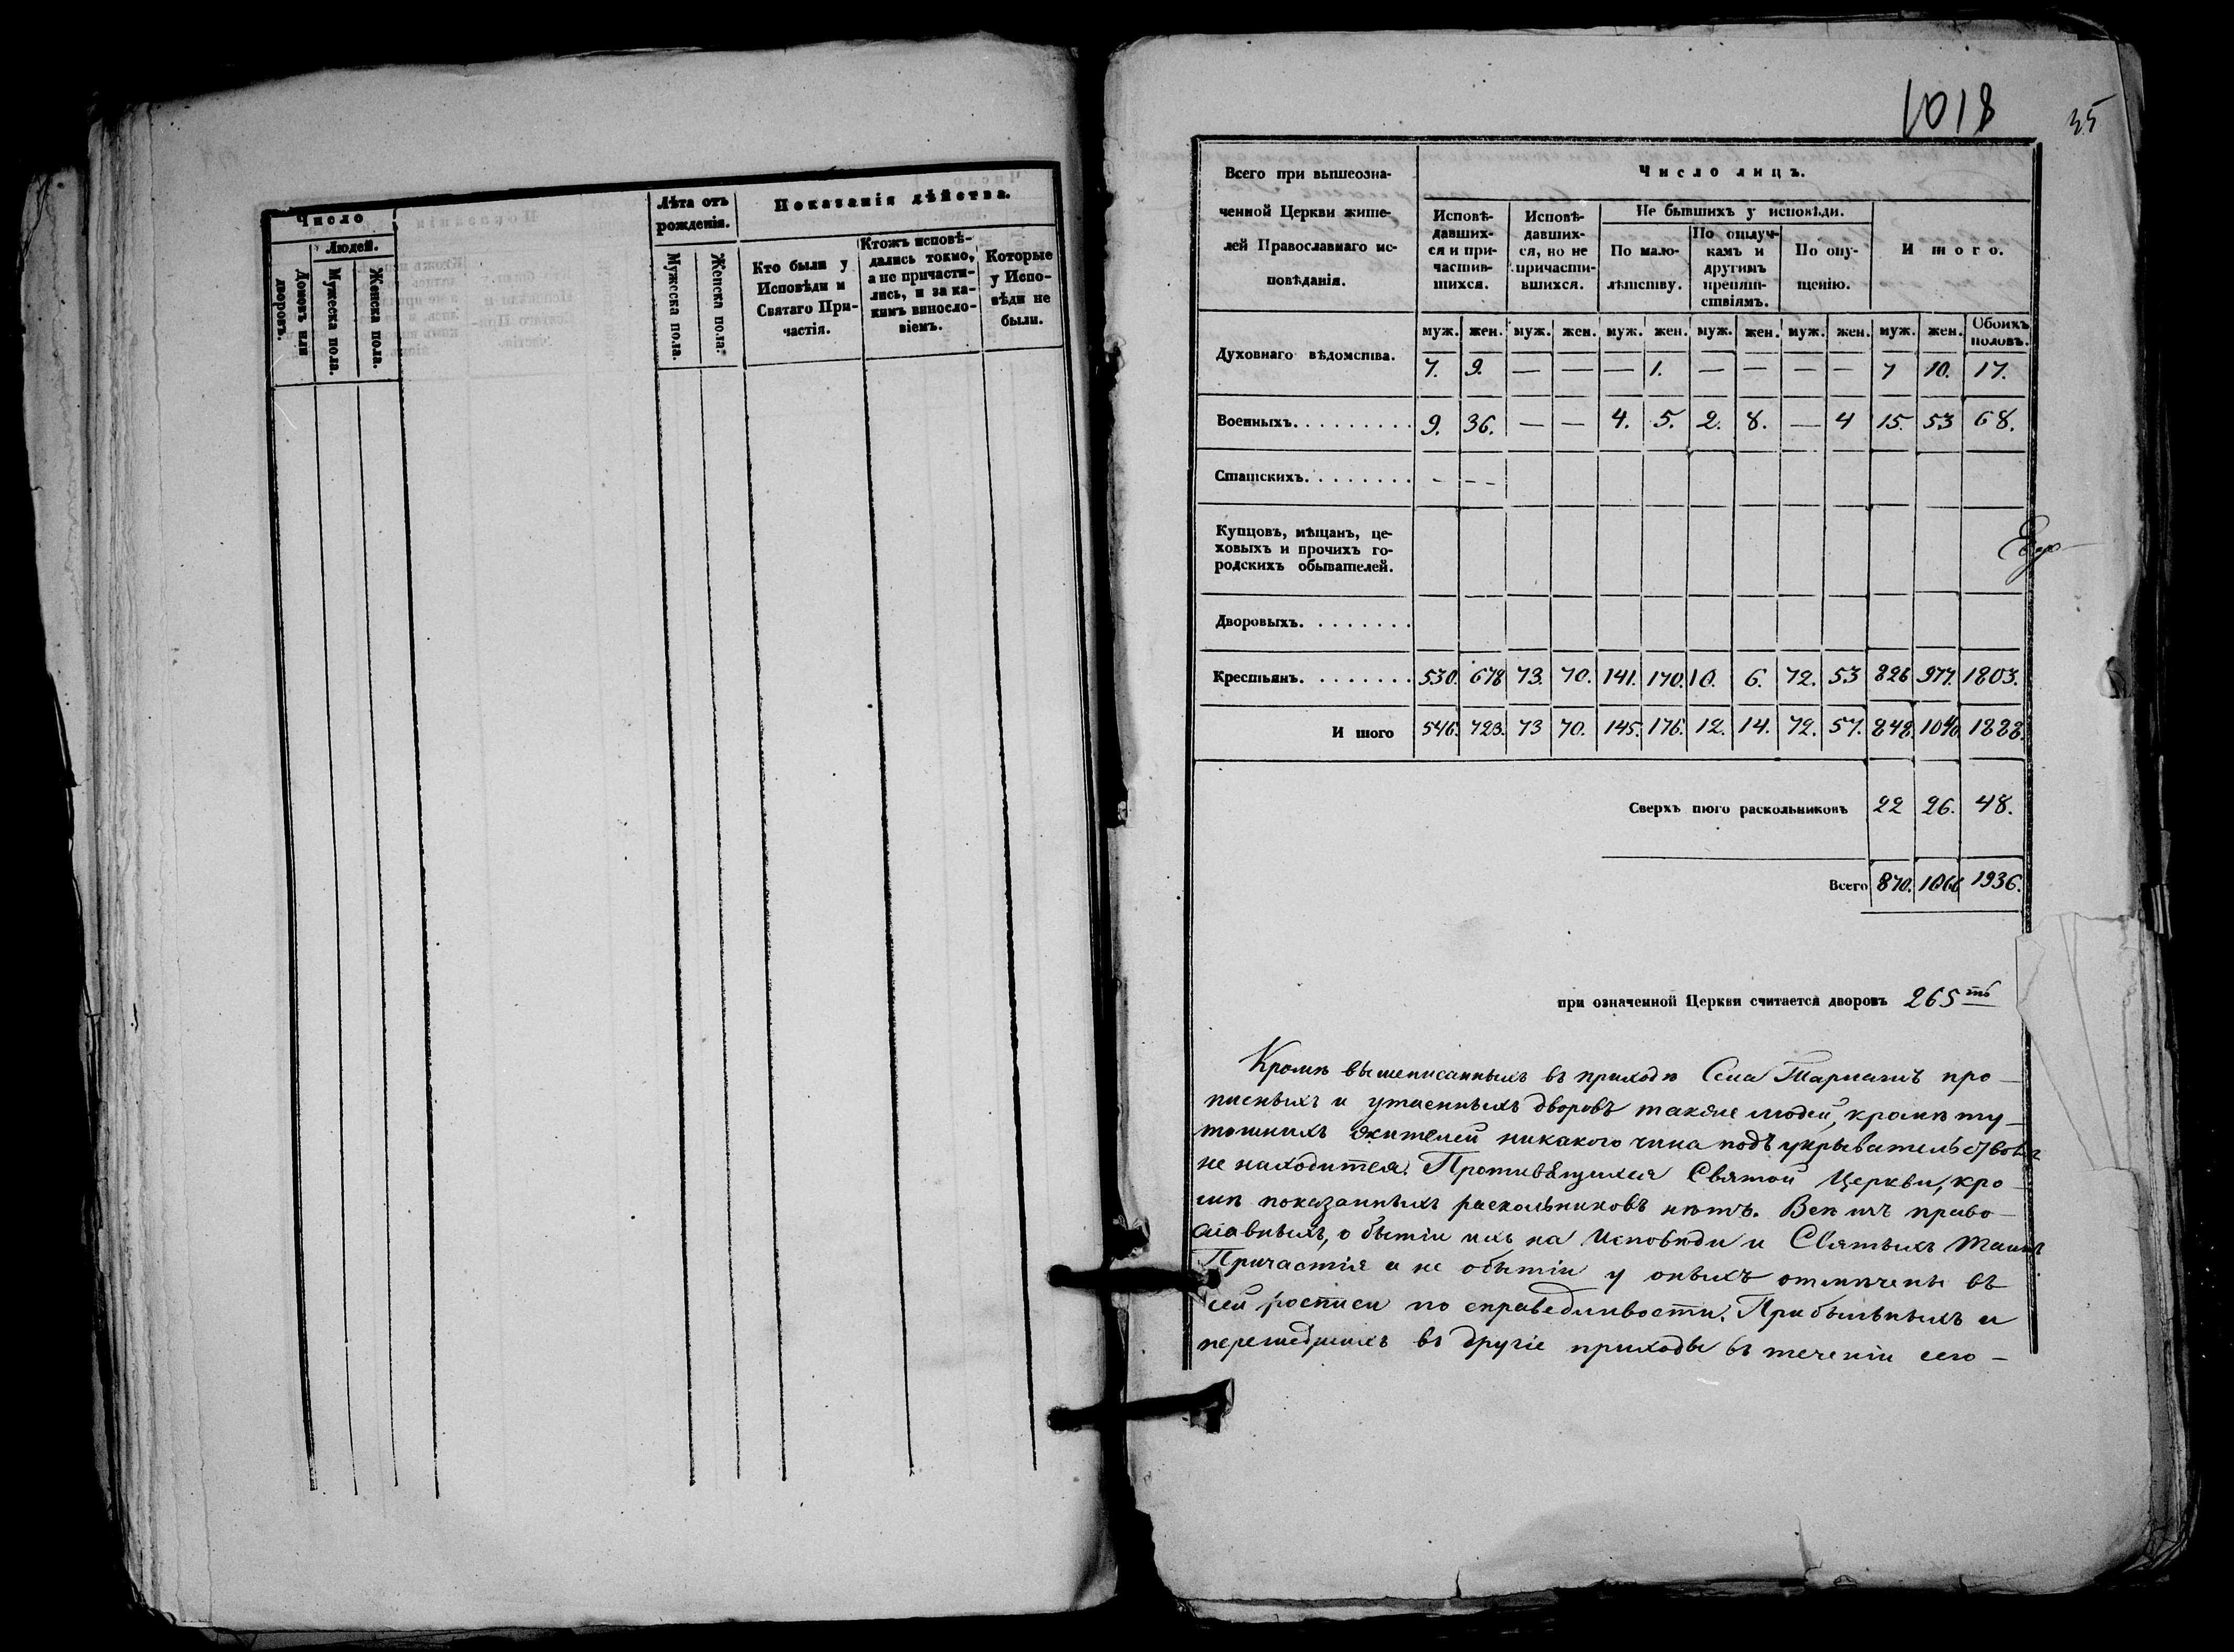 Число
Людей.
Домовъ или дворовъ.
Мужеска пола.
Женска пола.
Лѣта отъ рожденія.
Мужеска пола.
Женска пола.
Показанія дѣйства.
Кто были у
Исповѣди и
Святаго При-
частія.
Ктожъ исповѣ-
дались токмо,
а не причасти-
лись, и за ка-
кимъ винosло-
віемъ.
Которые
у Испо-
вѣди не
были.
1018
35
Всего при вышеозна-
ченной Церкви жите-
лей Православнаго ис-
повѣданія.
Число лицъ.
Исповѣ-
давших-
ся и при-
частив-
шихся.
Исповѣ-
давших-
ся, но не
причасти-
вшихся.
Не бывшихъ у исповѣди.
По мало-
лѣтству.
По отлуч-
камъ и
другимъ
препят-
ствіямъ.
По опу-
щенію.
Итого.
муж. жен. муж. жен. муж. жен. муж. жен. муж. жен. муж. жен. Обоихъ половъ.
Духовнаго вѣдомства. 7. 9. — — — 1. — — — — 7 10. 17.
Военныхъ. . . . . . . . . 9. 36. — — 4. 5. 2. 8. — 4 15. 53 68.
Статскихъ. . . . . . . . - - -
Купцовъ, мѣщанъ, це-
ховыхъ и прочихъ го-
родскихъ обывателей.
Дворовыхъ. . . . . . . .
Крестьянъ. . . . . . . . 530. 678 73. 70. 141. 170. 10. 6. 72. 53 826 977. 1803.
Итого 546. 723. 73 70. 145. 176. 12. 14. 72. 57. 848. 1040 1888.
Сверхъ того раскольниковъ 22 26. 48.
Всего 870. 1066 1936.
при означенной Церкви считается дворовъ 265 ть
Кромѣ вышеписанныхъ въ приходѣ Села про-
писныхъ и утаенныхъ дворовъ также людей, кромѣ ту-
тошнихъ жителей никакого чина подъ укрывательствомъ
не находится. Противящихся Святой Церкви, кро-
мѣ показанныхъ раскольниковъ нѣтъ. Всѣ изъ право-
славныхъ, о бытіи ихъ на Исповѣди и Святыхъ Таинъ
Причастія и не обытіи у оныхъ отмѣчены въ
сей росписи по справедливости. Прибылыхъ и
перешедшихъ въ другіе приходы въ теченіи сего-